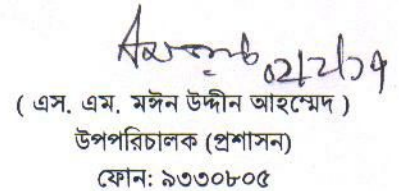 02/2/19
( এস. এম. মঈন উদ্দীন আহম্মেদ )
উপপরিচালক (প্রশাসন)
ফোন: ৯৩৩০৮০৫